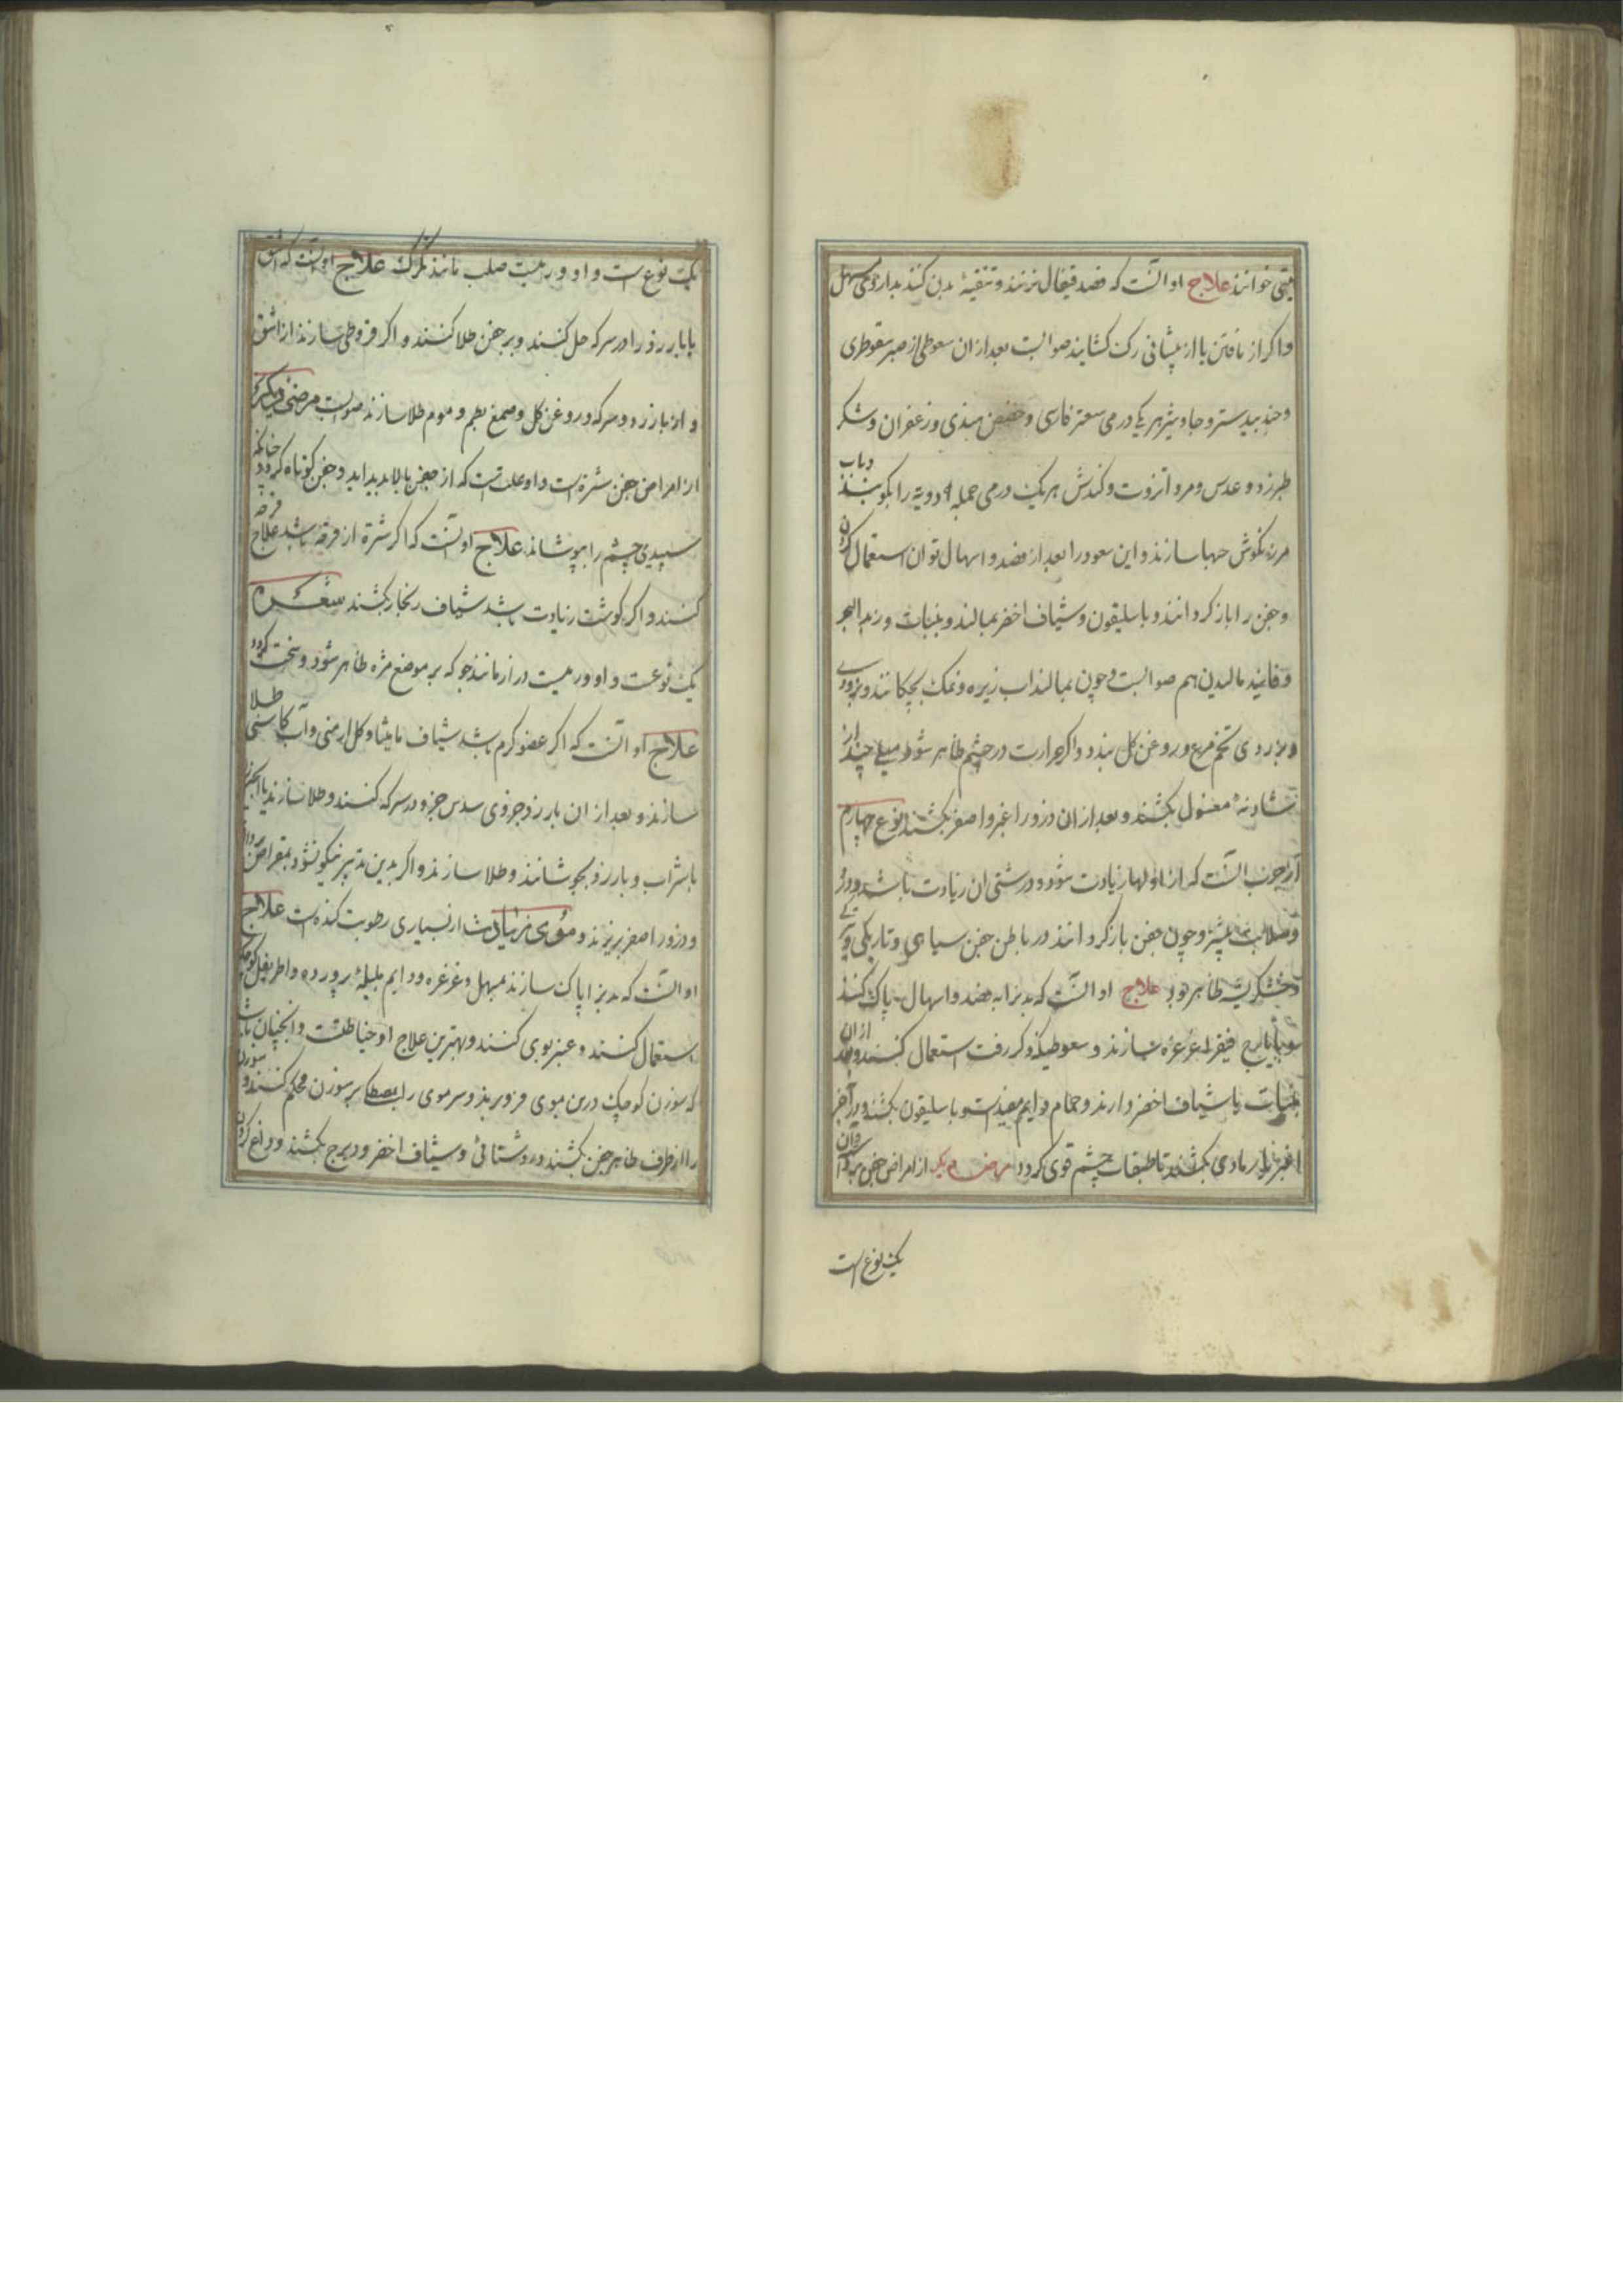 خوانند علاج او انست که فصد قیفال زنند و تنقیهٔ بدن کنند بداروی مسهل
و اکر از یا از پیشانی رک کشایند صوابست بعد از ان سعوطی از صبر سقوطری
و جندبیدستر و جاوشیر هر یکی درمی سعتر فارسی و حضض هندی و زعفران و شکر
طبرزد و عدس و مر و انزروت و کندش هر یک درمی جمله ادویه را بکوبند و باب
مرزنکوش حبها سازند و این سعود را بعد از فصد و اسهال توان استعمال کردن
و جفن را باز کردانند و باسلیقون و شیاف اخضر بمالند و بنبات و زبد البحر
و فانیذ مالیدن هم صوابست و چون بمالند اب زیره و نمک بچکانند و بزودی
و بزردی تخم مرغ و روغن کل بندد و اکر حرارت در چشم ظاهر شود میلی چند از
شادنهٔ مغسول بکشند و بعد از ان ذرور اغبر و اصفر بکشند نوع چهارم
از جرب انست که از اولها زیادت شود و درشتی ان زیادت باشد و درد
و صلابت بیشتر و چون جفن باز کردانند در باطن جفن سیاهی و تاریکی و
و خشکریشه ظاهر بود علاج او انست که بدن را بفصد و اسهال پاک کنند
ایارج فیقرا غرغره سازند و سعوطیکه ذکر رفت استعمال کنند و بعد از ان
بنبات یا شیاف اخضر وارند و حمام دایم مفیدست و باسلیقون بکشند و در آخر
اغبر یا رمادی بکشند تا طبقات چشم قوی کردد مرض دیکر از امراض جفن بردست و آن
یک نوع است
یک نوع است و او ورمیست صلب مانند تکرک علاج او انست که اشق
یا بارزد را در سرکه حل کنند و بر جفن طلا کنند و اکر قروطی سازند از اشق
و از بارزد و سرکه و روغن کل و صمغ بطم و موم طلا سازند صوابست مرضی دیکر
از امراض جفن شتره است و او علتیست که از جفن بالا پدید اید و جفن کوتاه کردد چنانکه
سپیدی چشم را بپوشاند علاج او انست که اکر شتره از قرحه باشد علاج قرحه
کنند و اکر کوشت زیادت باشد شیاف زنجار بکشند شعیره
یک نوعست و او ورمیست دراز مانند جو که بر موضع مژه ظاهر شود و سخت کردد
علاج او انست که اکر عضو کرم باشد شیاف مامیثا و کل ارمنی و آب کاسنی طلا
سازند و بعد از ان بارزد جزوی سدس جزو در سرکه کنند و طلا سازند یا انجیر
با شراب و بارزد بجوشانند و طلا سازند و اکر بدین تدبیر نیکو نشود بمقراض بردارند
و ذرور اصفر بریزند و موی زیادت از بسیاری رطوبت کنده است علاج
او انست که بدن را پاک سازند بمسهل و غرغره و دایم هلیلهٔ پرورده و اطریفل کوچک
استعمال کنند و عنبر بوی کنند و بهترین علاج او خیاطتست و انچنان باشد
که سوزن کوچک در بن موی فرو برند و سر موی را بمصطکا بر سوزن محکم کنند و سوزن
را از طرف ظاهر جفن بکشند و روشنائی و شیاف اخضر و دیرج بکشند و داغ کردن